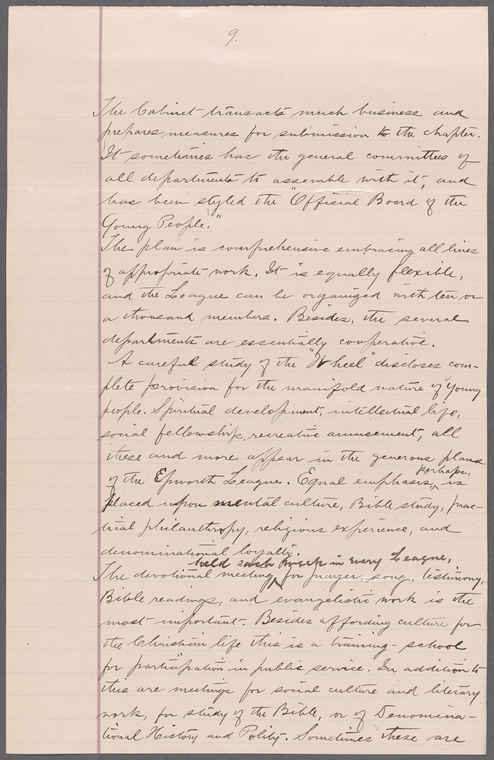 9.
The Cabinet transacts much business and
prepares measures for submission to the chapter.
It sometimes has the general committees of
all departments to assemble with it, and
has been styled the "Official Board of the
Young People."
The plan is comprehensive embracing all lines
of appropriate work. It is equally flexible,
and the League can be organized with ten or
a thousand members. Besides, the several
departments are essentially cooperative.
A careful study of the "Wheel" discloses com-
plete provision for the manifold nature of young
people. Spiritual development, intellectual life,
social fellowship, recreative amusement, all
these and more appear in the generous plans
perhaps,
of the Epworth League. Equal emphasis, is
placed upon mental culture, Bible study, prac-
tical philanthropy, religious experience, and
denominational loyalty.
held each week in every League,
The devotional meeting, for prayer, song, testimony,
Bible readings, and evangelistic work is the
most important. Besides affording culture for
the Christian life this is a training-school
for participation in public service. In addition to
this are meetings for social culture and literary
work, for study of the Bible, or of Denomina-
tional History and Polity. Sometimes these are